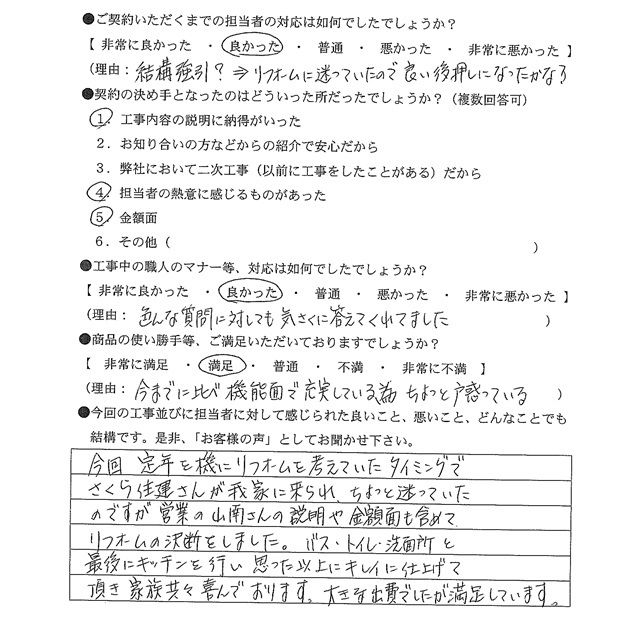 ●ご契約いただくまでの担当者の対応は如何でしたでしょうか？
【 非常に良かった ・ 良かった ・ 普通 ・ 悪かった ・ 非常に悪かった 】
（理由：結構強引？⇒リフォームに迷っていたので良い後押しになったかなぅ
●契約の決め手となったのはどういった所だったでしょうか？（複数回答可）
1．工事内容の説明に納得がいった
2．お知り合いの方などからの紹介で安心だから
3．弊社において二次工事（以前に工事をしたことがある）だから
4．担当者の熱意に感じるものがあった
5．金額面
6．その他（ ）
●工事中の職人のマナー等、対応は如何でしたでしょうか？
【 非常に良かった ・ 良かった ・ 普通 ・ 悪かった ・ 非常に悪かった 】
（理由：色んな質問に対しても気さくに答えてくれてました ）
●商品の使い勝手等、ご満足いただいておりますでしょうか？
【 非常に満足 ・ 満足 ・ 普通 ・ 不満 ・ 非常に不満 】
（理由：今までに比べ機能面で充実している為ちょっと戸惑っている ）
●今回の工事並びに担当者に対して感じられた良いこと、悪いこと、どんなことでも
結構です。是非、「お客様の声」としてお聞かせ下さい。
今回 定年を機にリフォームを考えていたタイミングで
さくら住建さんが我家に来られ、ちょっと迷っていた
のですが営業の山南さんの説明や金額面も含めて
リフォームの決断をしました。バス・トイレ・洗面所と
最後にキッチンを行い 思った以上にキレイに仕上げて
頂き 家族共々喜んでおります。大きな出費でしたが満足しています。